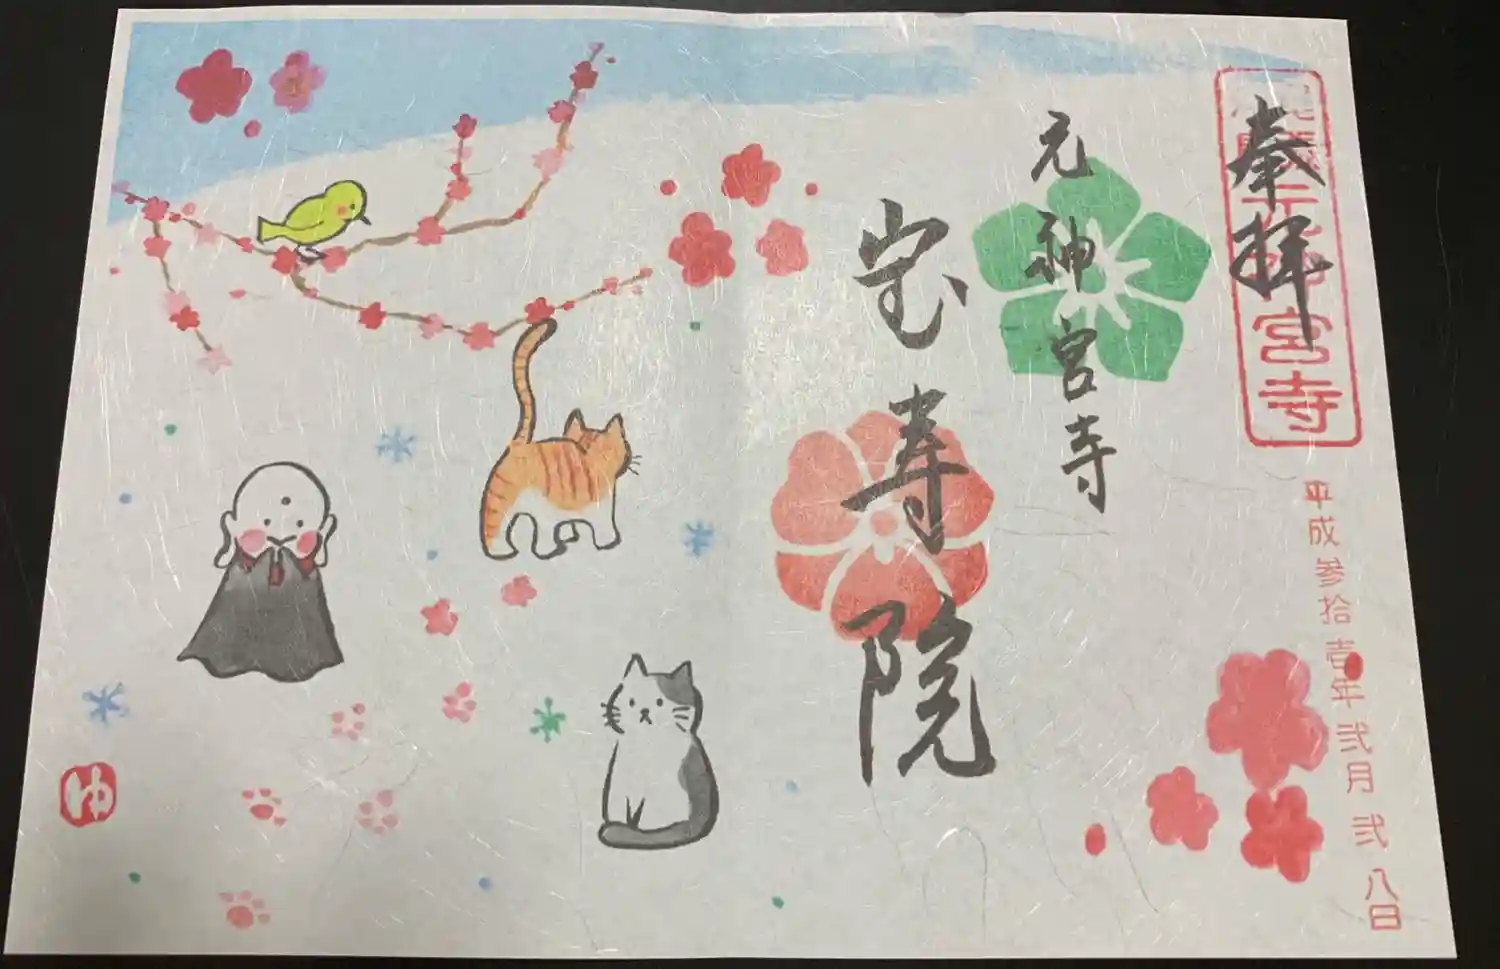 奉拝
宮寺
元神宮寺
宝寿院
平成参拾壱年弐月弐八日
ゆ